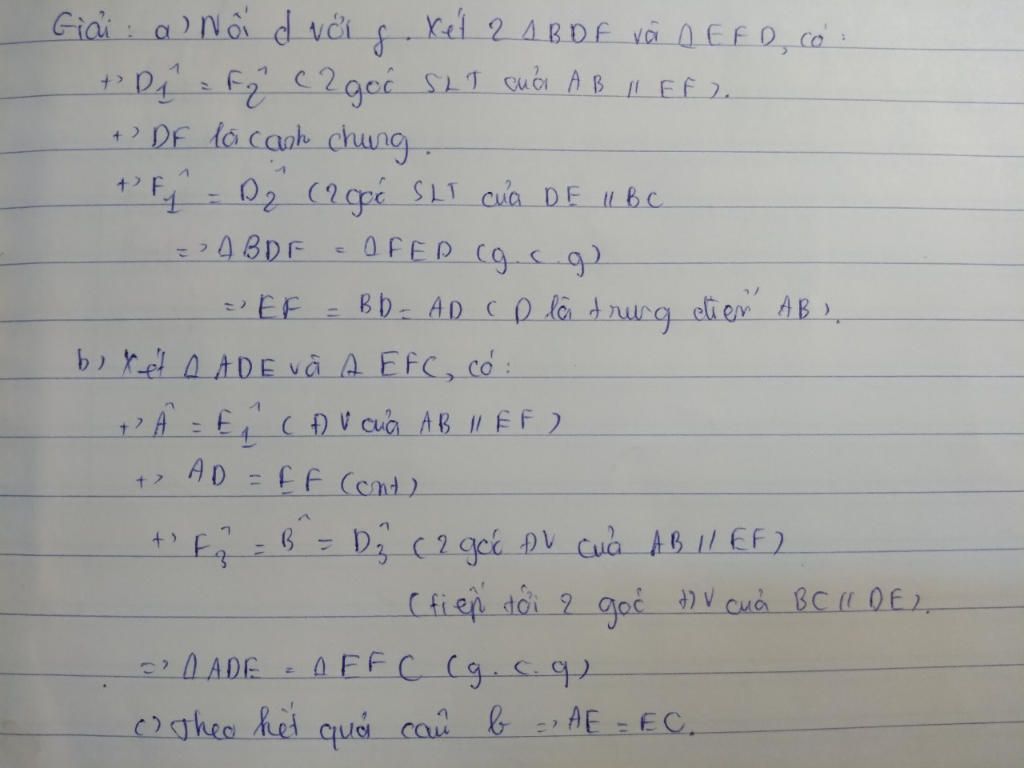 Giải: a) Nối d với f. Xét 2 ΔBDF và ΔEFD, có:
+) D̂1 = F̂2 (2 góc SLT của AB // EF).
+) DF là cạnh chung.
+) F̂1 = D̂2 (2 góc SLT của DE // BC
=> ΔBDF = ΔFED (g.c.g)
=> EF = BD = AD (D là trung điểm AB).
b) Xét ΔADE và ΔEFC, có:
+) Â = Ê1 (ĐV của AB // EF)
+) AD = EF (cmt)
+) F̂3 = B̂ = D̂3 (2 góc ĐV của AB // EF)
(tiếp tới 2 góc ĐV của BC // DE).
=> ΔADE = ΔEFC (g.c.g)
c) Theo kết quả câu b => AE = EC.